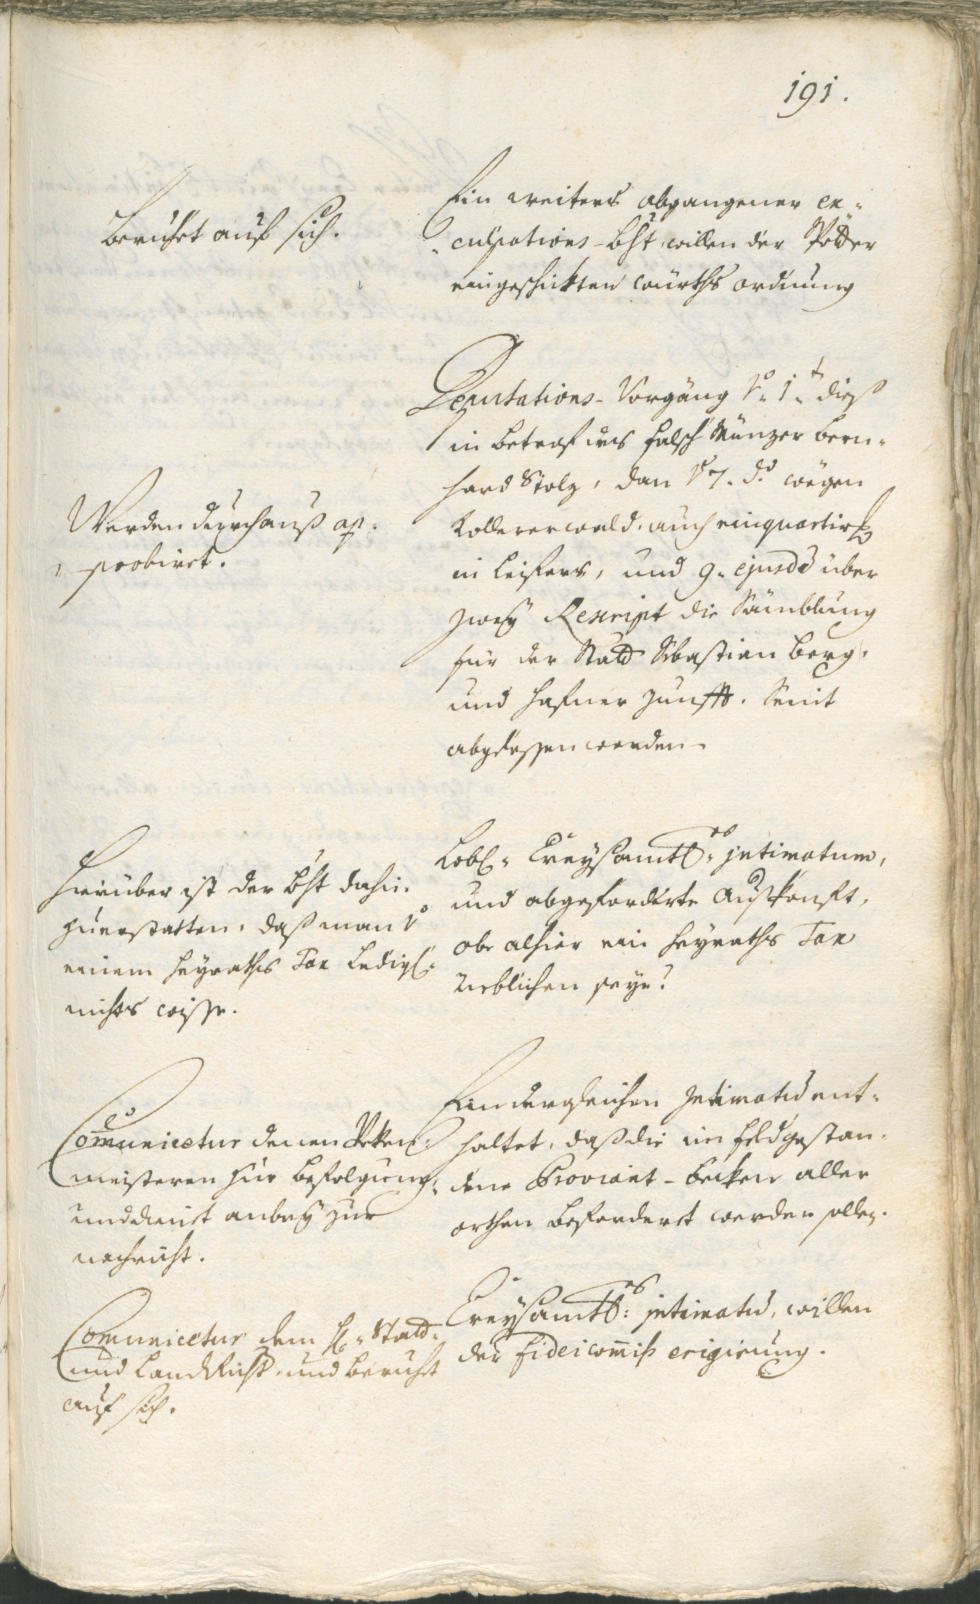 191.
Beruhet auf sich.
Ein weiters abgangener ex¬
culpations-bht, willen der
eingeschikten würths ordnung
Werden durchauß ap¬
probiret.
Deputations-Vorgäng Vo. 1.t dieß
in betref des falsch Münzer bern¬
hard Stolz, dan Vo 7. do. wegen
Kollererwald, auch einquartir
in Leifers, und 9. ejusdem über
zwey Rescript die Sämblung
für der Statt Sebastian berg,
und hafner zunfft. Seint
abgelesen worden.
Hierüber ist der bht dahin
zuerstatten, daß man Vo
einem heyraths Tax ledigl:
nichts wisse.
Löbl. Creysamtl. jntimatum,
und abgeforderte Auskonft,
obe alhier ein heyraths Tax
üeblichen seye?
Comunicetur denen Peken¬
meisteren zur befolgung,
und dient anbey zur
nachricht.
Ein dergleichen Intimatum ent¬
haltet, daß die im feld gestan¬
dene Proviant-becken aller
orthen befordert werden sollen.
Comunicetur dem H. Statt
und Landtricht. und beruhet
auf sich.
Creysamtl: jntimatum, willen
der fideicomiß erigierung.